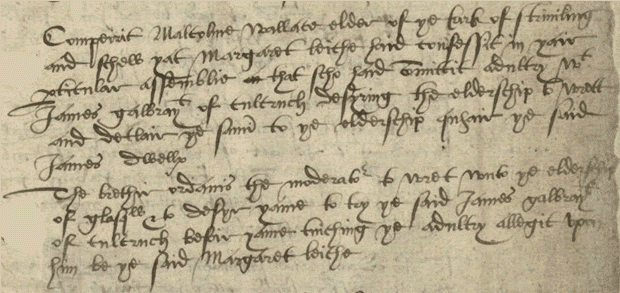 Comperit Malcolme Wallace elder of ye kirk of striviling
and schew yat Margaret leiche haid confessit in yair
p[er]ticular assemblie that scho haid co[m]mittit adultry wt
James galbrayt of culcruch desyring the elderschip to wrett
and declair ye samin to ye elderschip quhair ye said
James dwellis
The brethir ordanis the moderator to wret unto ye elderschip
of glasgw & to desyr yame to try ye said James galbrayt
of culcruch befoir yame tuiching ye adultry allegit upon
him be ye said Margaret leiche